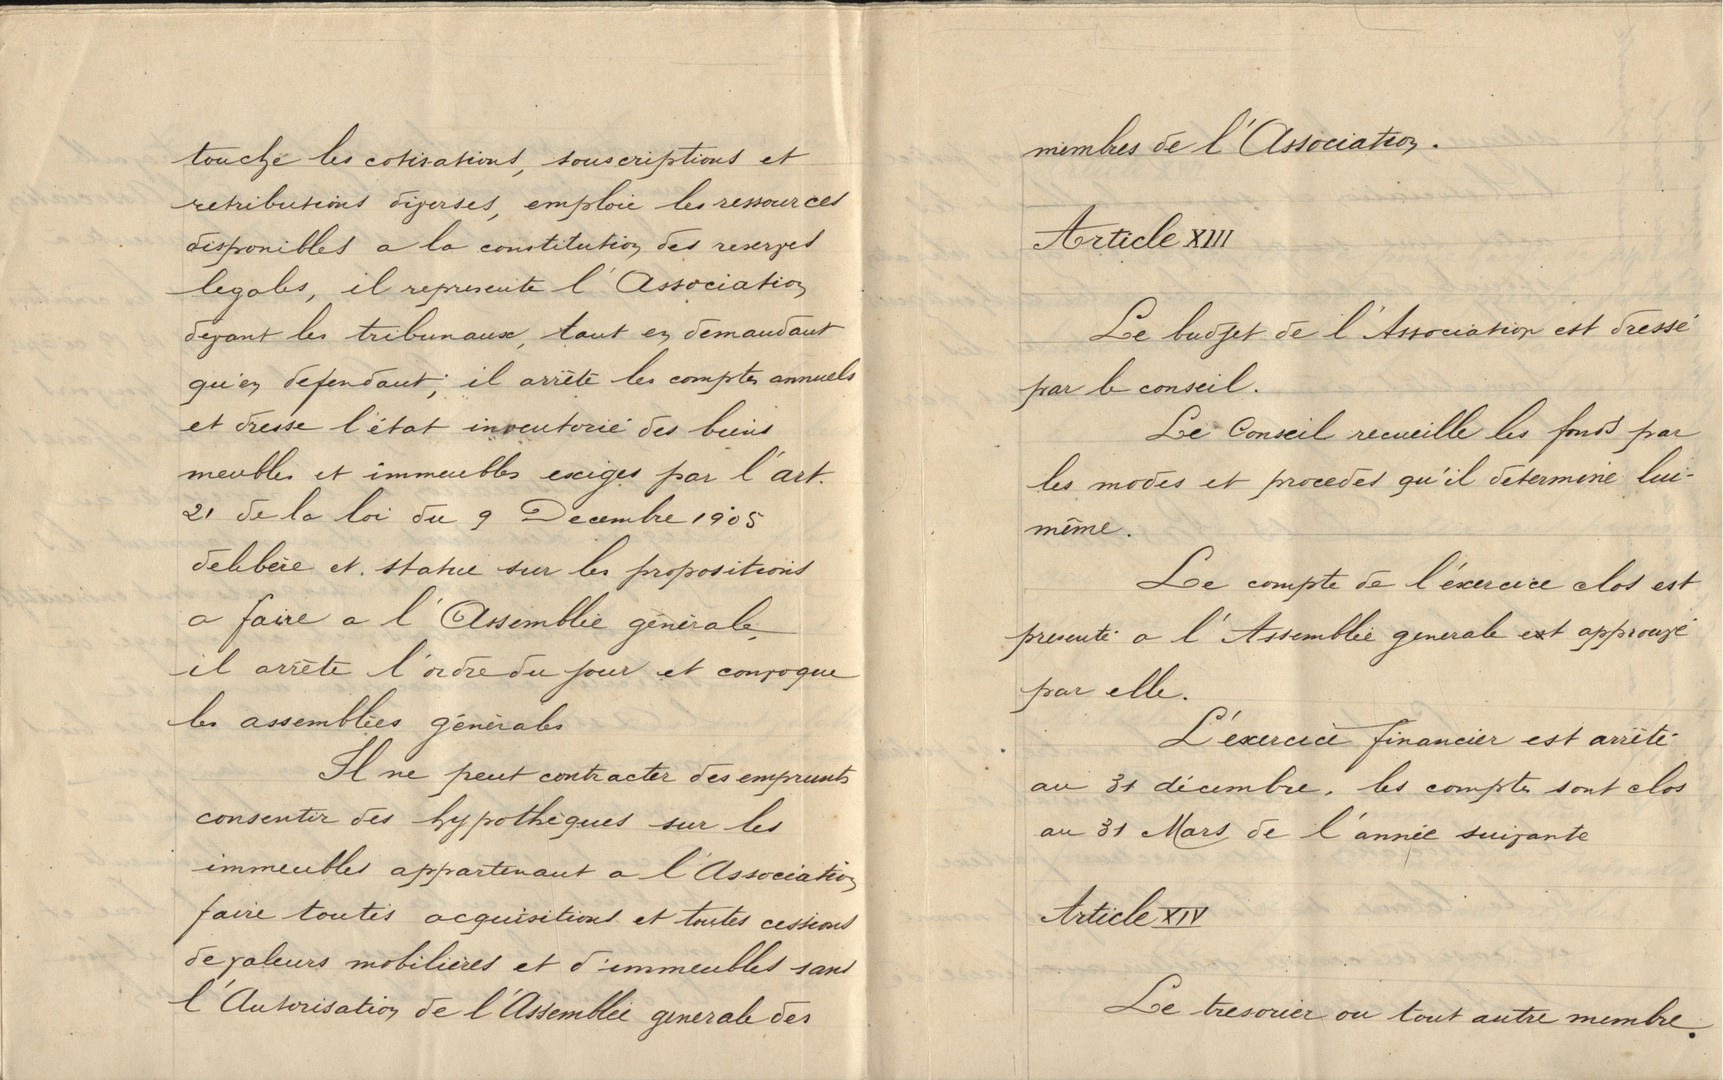 touche les cotisations, souscriptions et
retributions diverses, emploie les ressources
disponibles a la constitution des reserves
legales, il represente l'Association
devant les tribunaux, tant en demandant
qu'en defendant; il arrête les comptes annuels
et dresse l'état inventorié des biens
meubles et immeubles exiges par l'art.
21 de la loi du 9 Decembre 1905
delibère et statue sur les propositions
a faire a l'Assemblée générale,
il arrête l'ordre du jour et convoque
les assemblées générales
Il ne peut contracter des emprunts
consentir des hypothèques sur les
immeubles appartenant a l'Association
faire toutes acquisitions et toutes cessions
de valeurs mobilières et d'immeubles sans
l'Autorisation de l'Assemblée generale des
membres de l'Association.
Article XIII
Le budget de l'Association est dressé
par le conseil.
Le Conseil recueille les fonds par
les modes et procedes qu'il determine lui-
même.
Le compte de l'éxercice clos est
presenté a l'Assemblée generale est approuvé
par elle.
L'éxercice financier est arrêté
au 31 décembre, les comptes sont clos
au 31 Mars de l'année suivante
Article XIV
Le tresorier ou tout autre membre.